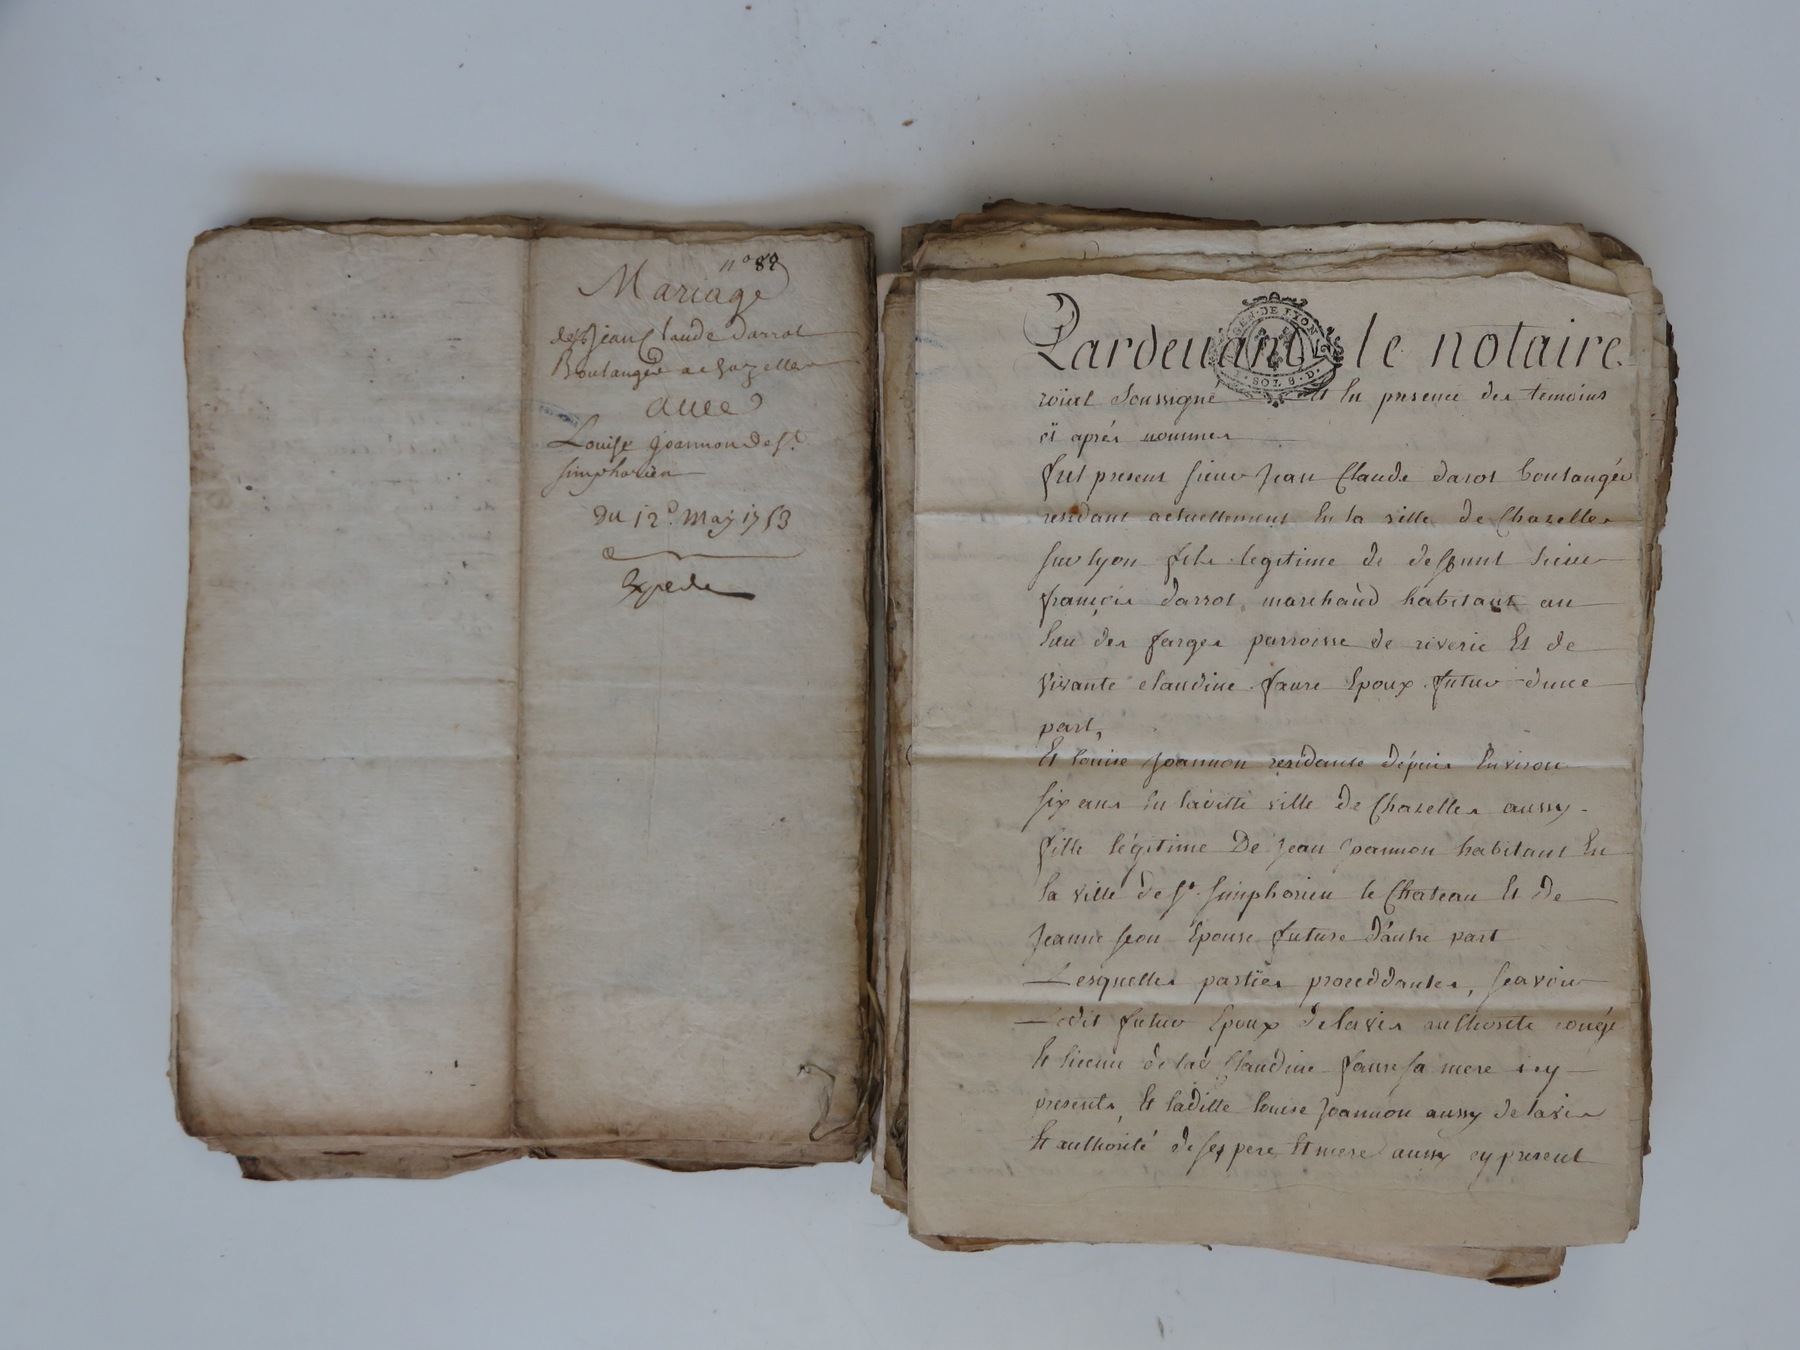 n° 89
Mariage
de sr Jean Claude darrot
Boulanger a Chazelles
avec
Louise Joannon de St.
simphorien
du 12e. May 1753
Expedie
GEN. DE LYON
SOL 8. D.
Pardevant le notaire
roïal soussigné Et En presence des temoins
cÿ aprés nommes
fut present sieur Jean Claude darot boulangér
residant actuellement En la ville de Chazelles
sur lyon fils legitime de deffunt sieur
françois darrot marchand habitant au
lieu des farges parroisse de riverie Et de
vivante claudine faure Epoux futur d'une
part,
Et louise Joannon residante dépuis Environ
six ans En laditte ville de Chazelles aussy
fille légitime De Jean Joannon habitant En
la ville de St. simphorien le Chateau Et de
Jeanne seon Epouse future d'autre part
Lesquelles partïes proceddantes, sçavoir
Ledit futur Epoux de lavis authorité congé
Et licence de lad Claudine faure sa mere icy
presente, Et laditte louise Joannon aussy de lavis
Et authorité de ses pere Et mere aussy cy present